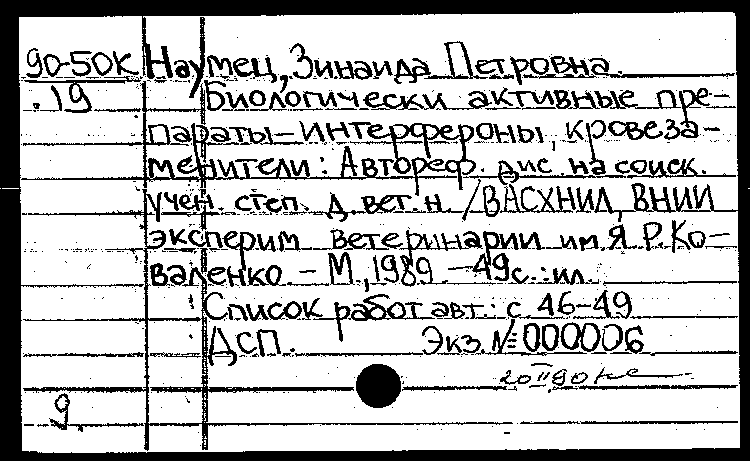 90-50К Наумец, Зинаида Петровна.
.19 Биологически активные пре-
параты-интерфероны, кровеза-
менители: Автореф. дис. на соиск.
учен. степ. д. вет. н. /ВАСХНИЛ, ВНИИ
эксперим ветеринарии им. Я.Р.Ко-
валенко. – М., 1989. – 49с.: ил.
Список работ авт.: с. 46-49
ДСП. Экз. № 000006
20 II 90
9.